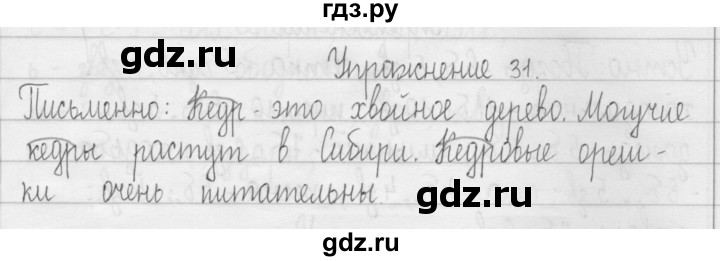 гдз.ру
gdz.ru
gdz.ru
Упражнение 31.
Письменно: Кедр - это хвойное дерево. Могучие
кедры растут в Сибири. Кедровые ореш-
ки очень питательны
gdz.ru
gdz.ru